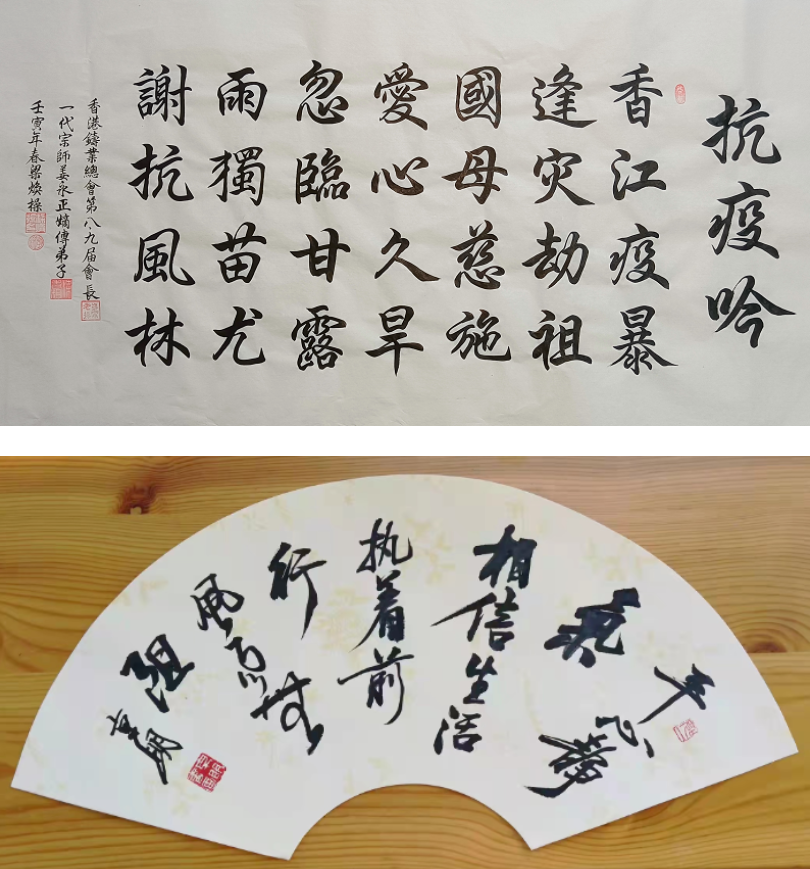 抗疫吟
香江疫暴
逢灾劫祖
國母慈施
愛心久旱
忽臨甘露
雨獨苗尤
謝抗風林
香港鑄業總會第八、九届會長
一代宗師姜永正嫡傳弟子
壬寅年春梁焕操
平心静
相信生活
执着前
行
風雨無
阻